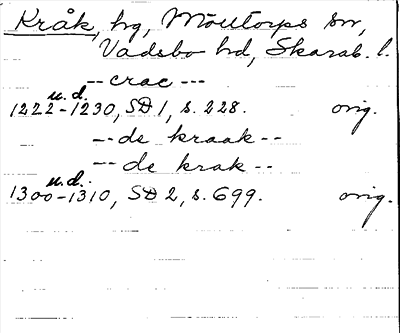 Kråk, hg, Möutorps sn,
Vadsbo hd, Skarab. l.
-- crac ---
u. d.
1222-1230, SD 1, s. 228. orig.
-- de kraak --
-- de krak --
u. d.
1300-1310, SD 2, s. 699. orig.